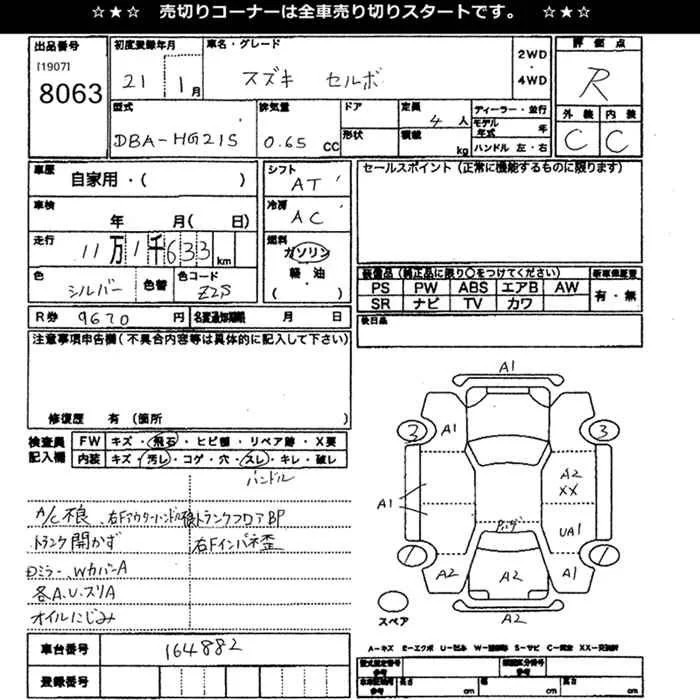 ☆★☆ 売切りコーナーは全車売り切りスタートです。 ☆★☆
出品番号
[1907]
8063
初度登録年月
21 1月
車名・グレード
スズキ セルボ
2WD
・
4WD
評価点
R
外装 内装
C C
型式
DBA-HG21S
排気量
0.65 CC
ドア
形状
定員
4 人
積載
kg
ディーラー・並行
モデル年式 年
ハンドル 左・右
車歴
自家用・( )
車検
年 月( 日)
走行
11万1千633km
色
シルバー
色替
色コード
Z2S
シフト
AT
冷房
AC
燃料
ガソリン
軽・油
( )
セールスポイント(正常に機能するものに限ります)
装備品(純正品に限り○をつけてください)
PS PW ABS エアB AW
SR ナビ TV カワ
新車保証書
有・無
後日品
R券 9670 円
名変通知期限 月 日
注意事項申告欄(不具合内容等は具体的に記入して下さい)
修復歴 有(箇所 )
検査員記入欄
FW キズ・飛石・ヒビ・リペア跡・X要
内装 キズ・汚レ・コゲ・穴・スレ・キレ・破レ
ハンドル
A/C不良、右Fアウターハンドル
トランクフロアBP
トランク開かず
右Fインパネ歪
Dミラー、WカバーA
各A.U.スリA
オイルにじみ
車台番号
164882
登録番号
A1
3 A1 3
A2
XX
A1
UA1
A2 A2 A1
スペア
A2
A-キズ E-エクボ U-凹み S-サビ
型式指定番号
参考
類別区分番号
参考
長さ cm
幅 cm
高さ cm